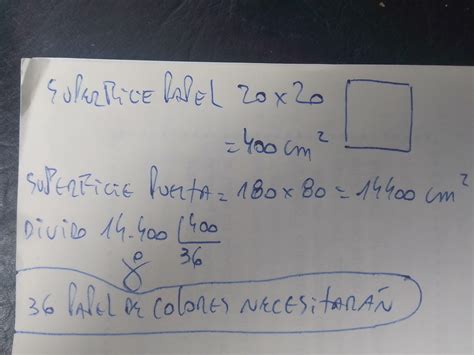 SUPERFICE PAPEL 20x20
=400 cm²
SUPERFICIE PUERTA = 180x80 = 14400 cm²
DIVIDO 14.400 400
0 36
36 PAPEL DE COLORES NECESITARÁN